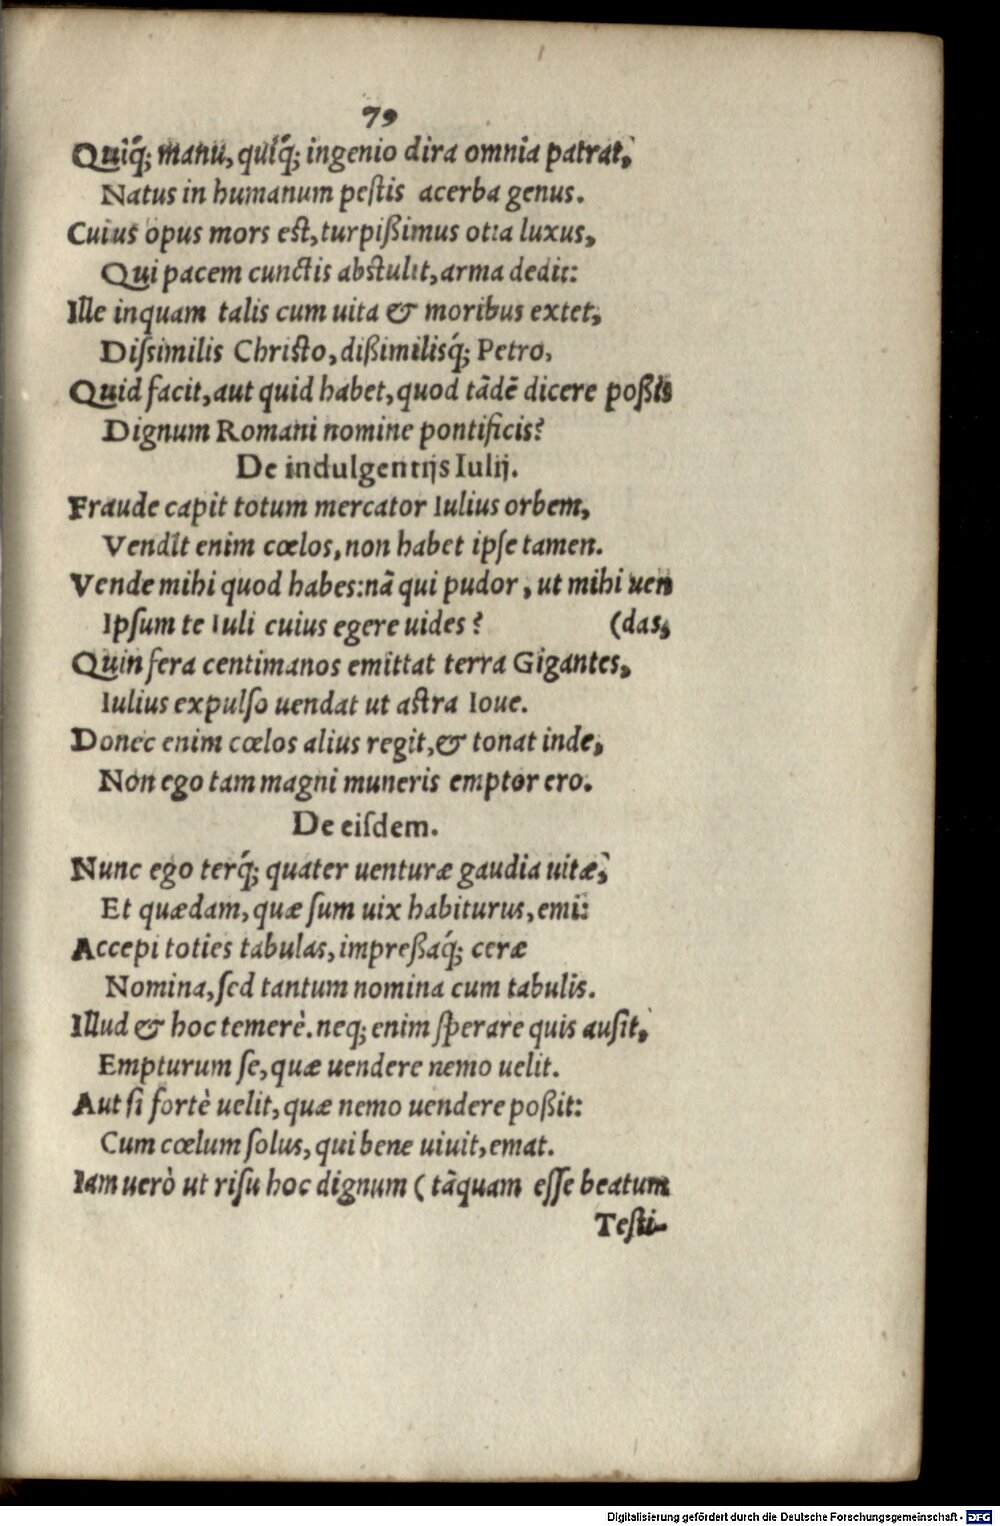 79
Quiq́; manu, quiq́; ingenio dira omnia patrat,
Natus in humanum peſtis acerba genus.
Cuius opus mors eſt, turpißimus otia luxus,
Qui pacem cunctis abſtulit, arma dedit:
Ille inquam talis cum uita & moribus extet,
Diſsimilis Chriſto, dißimilisq́; Petro,
Quid facit, aut quid habet, quod tādē dicere poßis
Dignum Romani nomine pontificis?
De indulgentijs Iulij.
Fraude capit totum mercator Iulius orbem,
Vendit enim cœlos, non habet ipſe tamen.
Vende mihi quod habes: nā qui pudor, ut mihi uen
Ipſum te Iuli cuius egere uides? (das,
Quin fera centimanos emittat terra Gigantes,
Iulius expulſo uendat ut aſtra Ioue.
Donec enim cœlos alius regit, & tonat inde,
Non ego tam magni muneris emptor ero.
De eiſdem.
Nunc ego terq́; quater uenturæ gaudia uitæ,
Et quædam, quæ ſum uix habiturus, emi:
Accepi toties tabulas, impreßaq́; ceræ
Nomina, ſed tantum nomina cum tabulis.
Illud & hoc temerè. neq; enim ſperare quis auſit,
Empturum ſe, quæ uendere nemo uelit.
Aut ſi fortè uelit, quæ nemo uendere poßit:
Cum cœlum ſolus, qui bene uiuit, emat.
Iam uerò ut riſu hoc dignum ( tāquam eſſe beatum
Teſti-
Digitalisierung gefördert durch die Deutsche Forschungsgemeinschaft - DFG